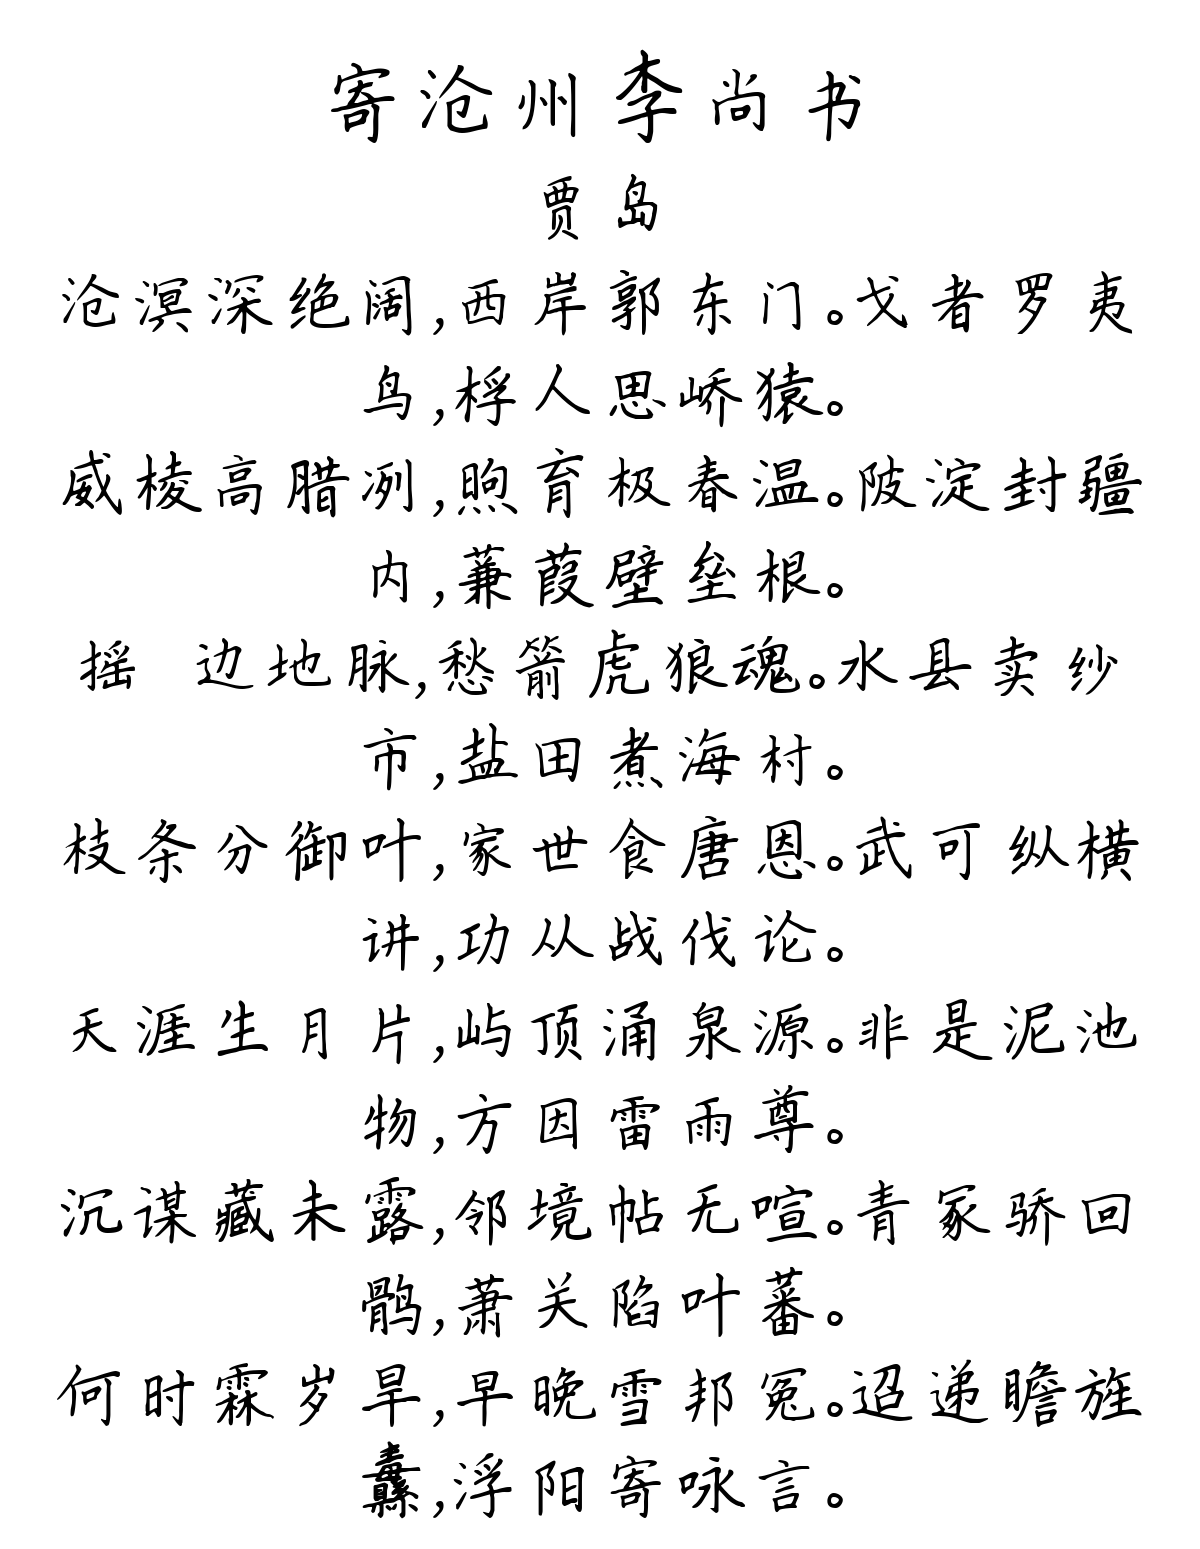 寄沧州李尚书
贾岛
沧溟深绝阔,西岸郭东门。戈者罗夷
鸟,桴人思峤猿。
威棱高腊冽,煦育极春温。陂淀封疆
内,蒹葭壁垒根。
摇 边地脉,愁箭虎狼魂。水县卖纱
市,盐田煮海村。
枝条分御叶,家世食唐恩。武可纵横
讲,功从战伐论。
天涯生月片,屿顶涌泉源。非是泥池
物,方因雷雨尊。
沉谋藏未露,邻境帖无喧。青冢骄回
鹘,萧关陷叶蕃。
何时霖岁旱,早晚雪邦冤。迢递瞻旌
纛,浮阳寄咏言。